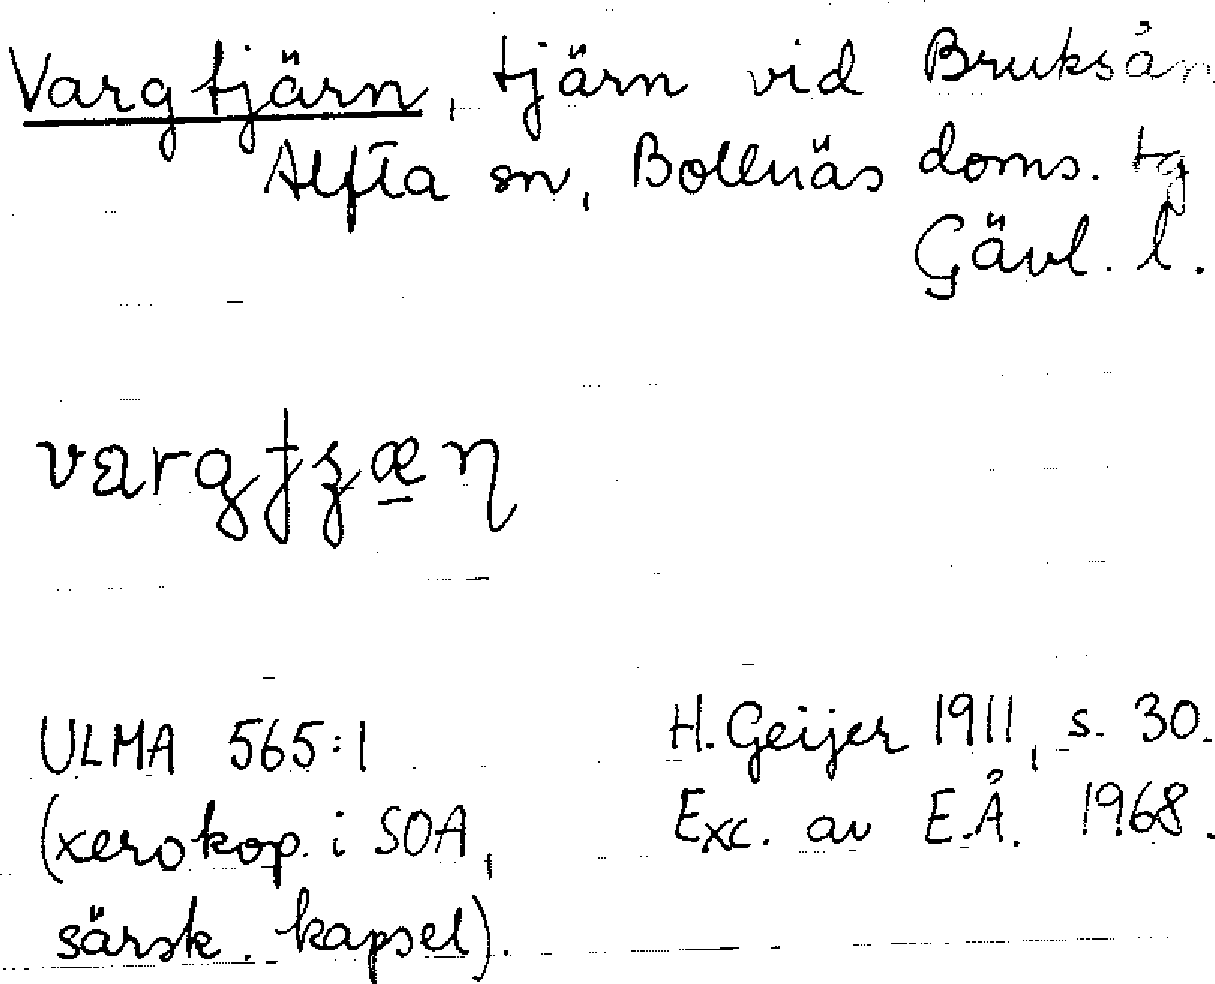 Vargtjärn, tjärn vid Bruksån
Alfta sn, Bollnäs doms. tg
Gävl. l.
ULMA 565:1
(xerokop. i SOA,
särsk. kapsel).
H. Geijer 1911, s. 30.
Exc. av E.Å. 1968.